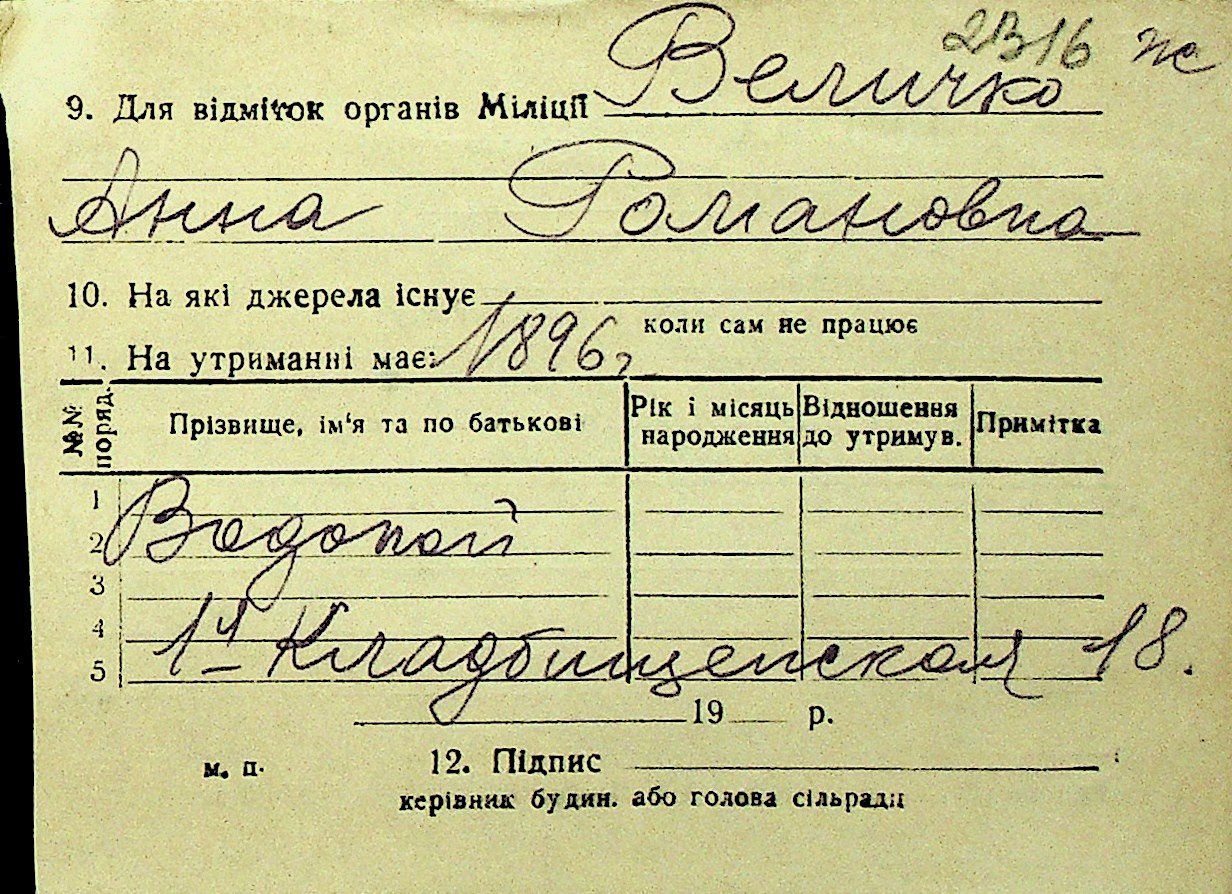 2В16 ж
9. Для відміток органів Міліції Величко
Анна Романовна
10. На які джерела існує
коли сам не працює
11. На утриманні має: 1896 г
№№ поряд. Прізвище, ім'я та по батькові Рік і місяць народження Відношення до утримув. Примітка
1
2 Водопой
3
4
5 1я Кладбищенская 18.
19 р.
м. п. 12. Підпис
керівник будин. або голова сільради